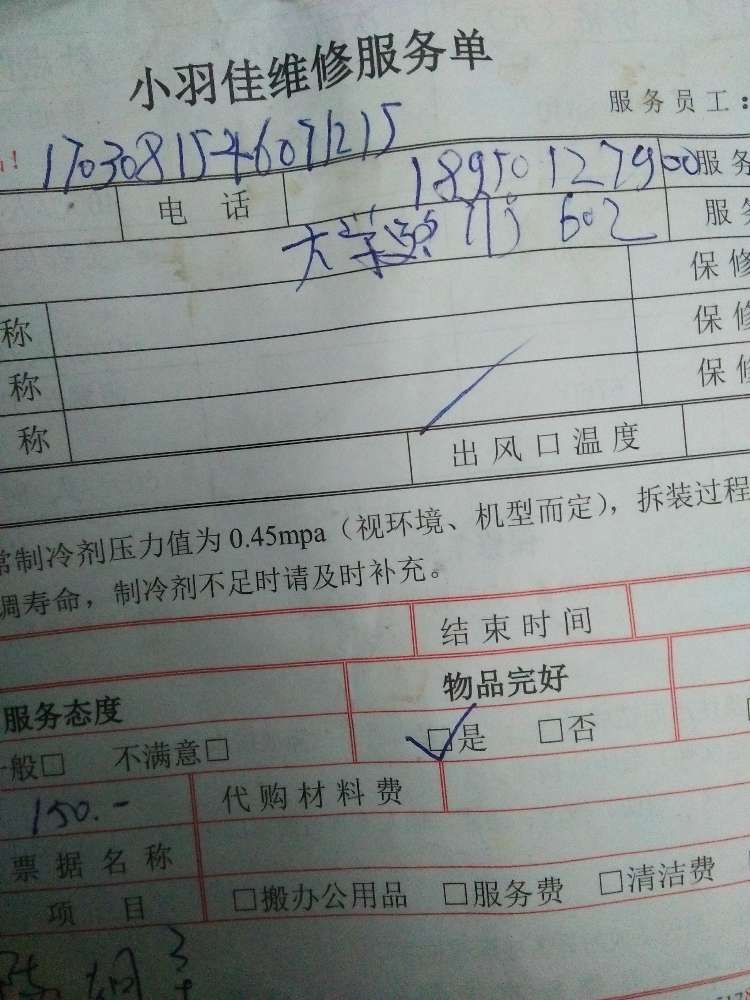 小羽佳维修服务单
服务员工：
!
1703081546071215
电 话 18950127900 服务
大学 602 服务
保修
称 保修
称 保修
称
出风口温度
常制冷剂压力值为0.45mpa（视环境、机型而定），拆装过程
调寿命，制冷剂不足时请及时补充。
结束时间
服务态度 物品完好
一般□ 不满意□ □是 □否
150.- 代购材料费
票据名称
项 目 □搬办公用品 □服务费 □清洁费